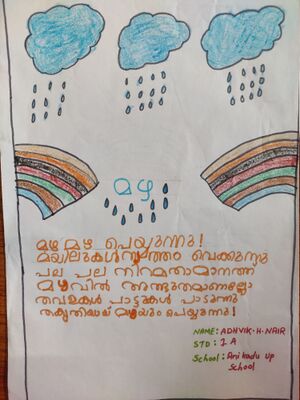 മഴ
മഴ മഴ പെയ്യുന്നു!
മയിലുകൾ നൃത്തം വെക്കുന്നു
പല പല നിറമതാമാനത്ത്
മഴവിൽ അത്ഭുതമാണല്ലോ
തവളകൾ പാട്ടുകൾ പാടുന്നു
തകൃതിയായ് മഴയും പെയ്യുന്നു!
NAME: ADHVIK.H.NAIR
STD : 1 A
School: Anikadu UP
School